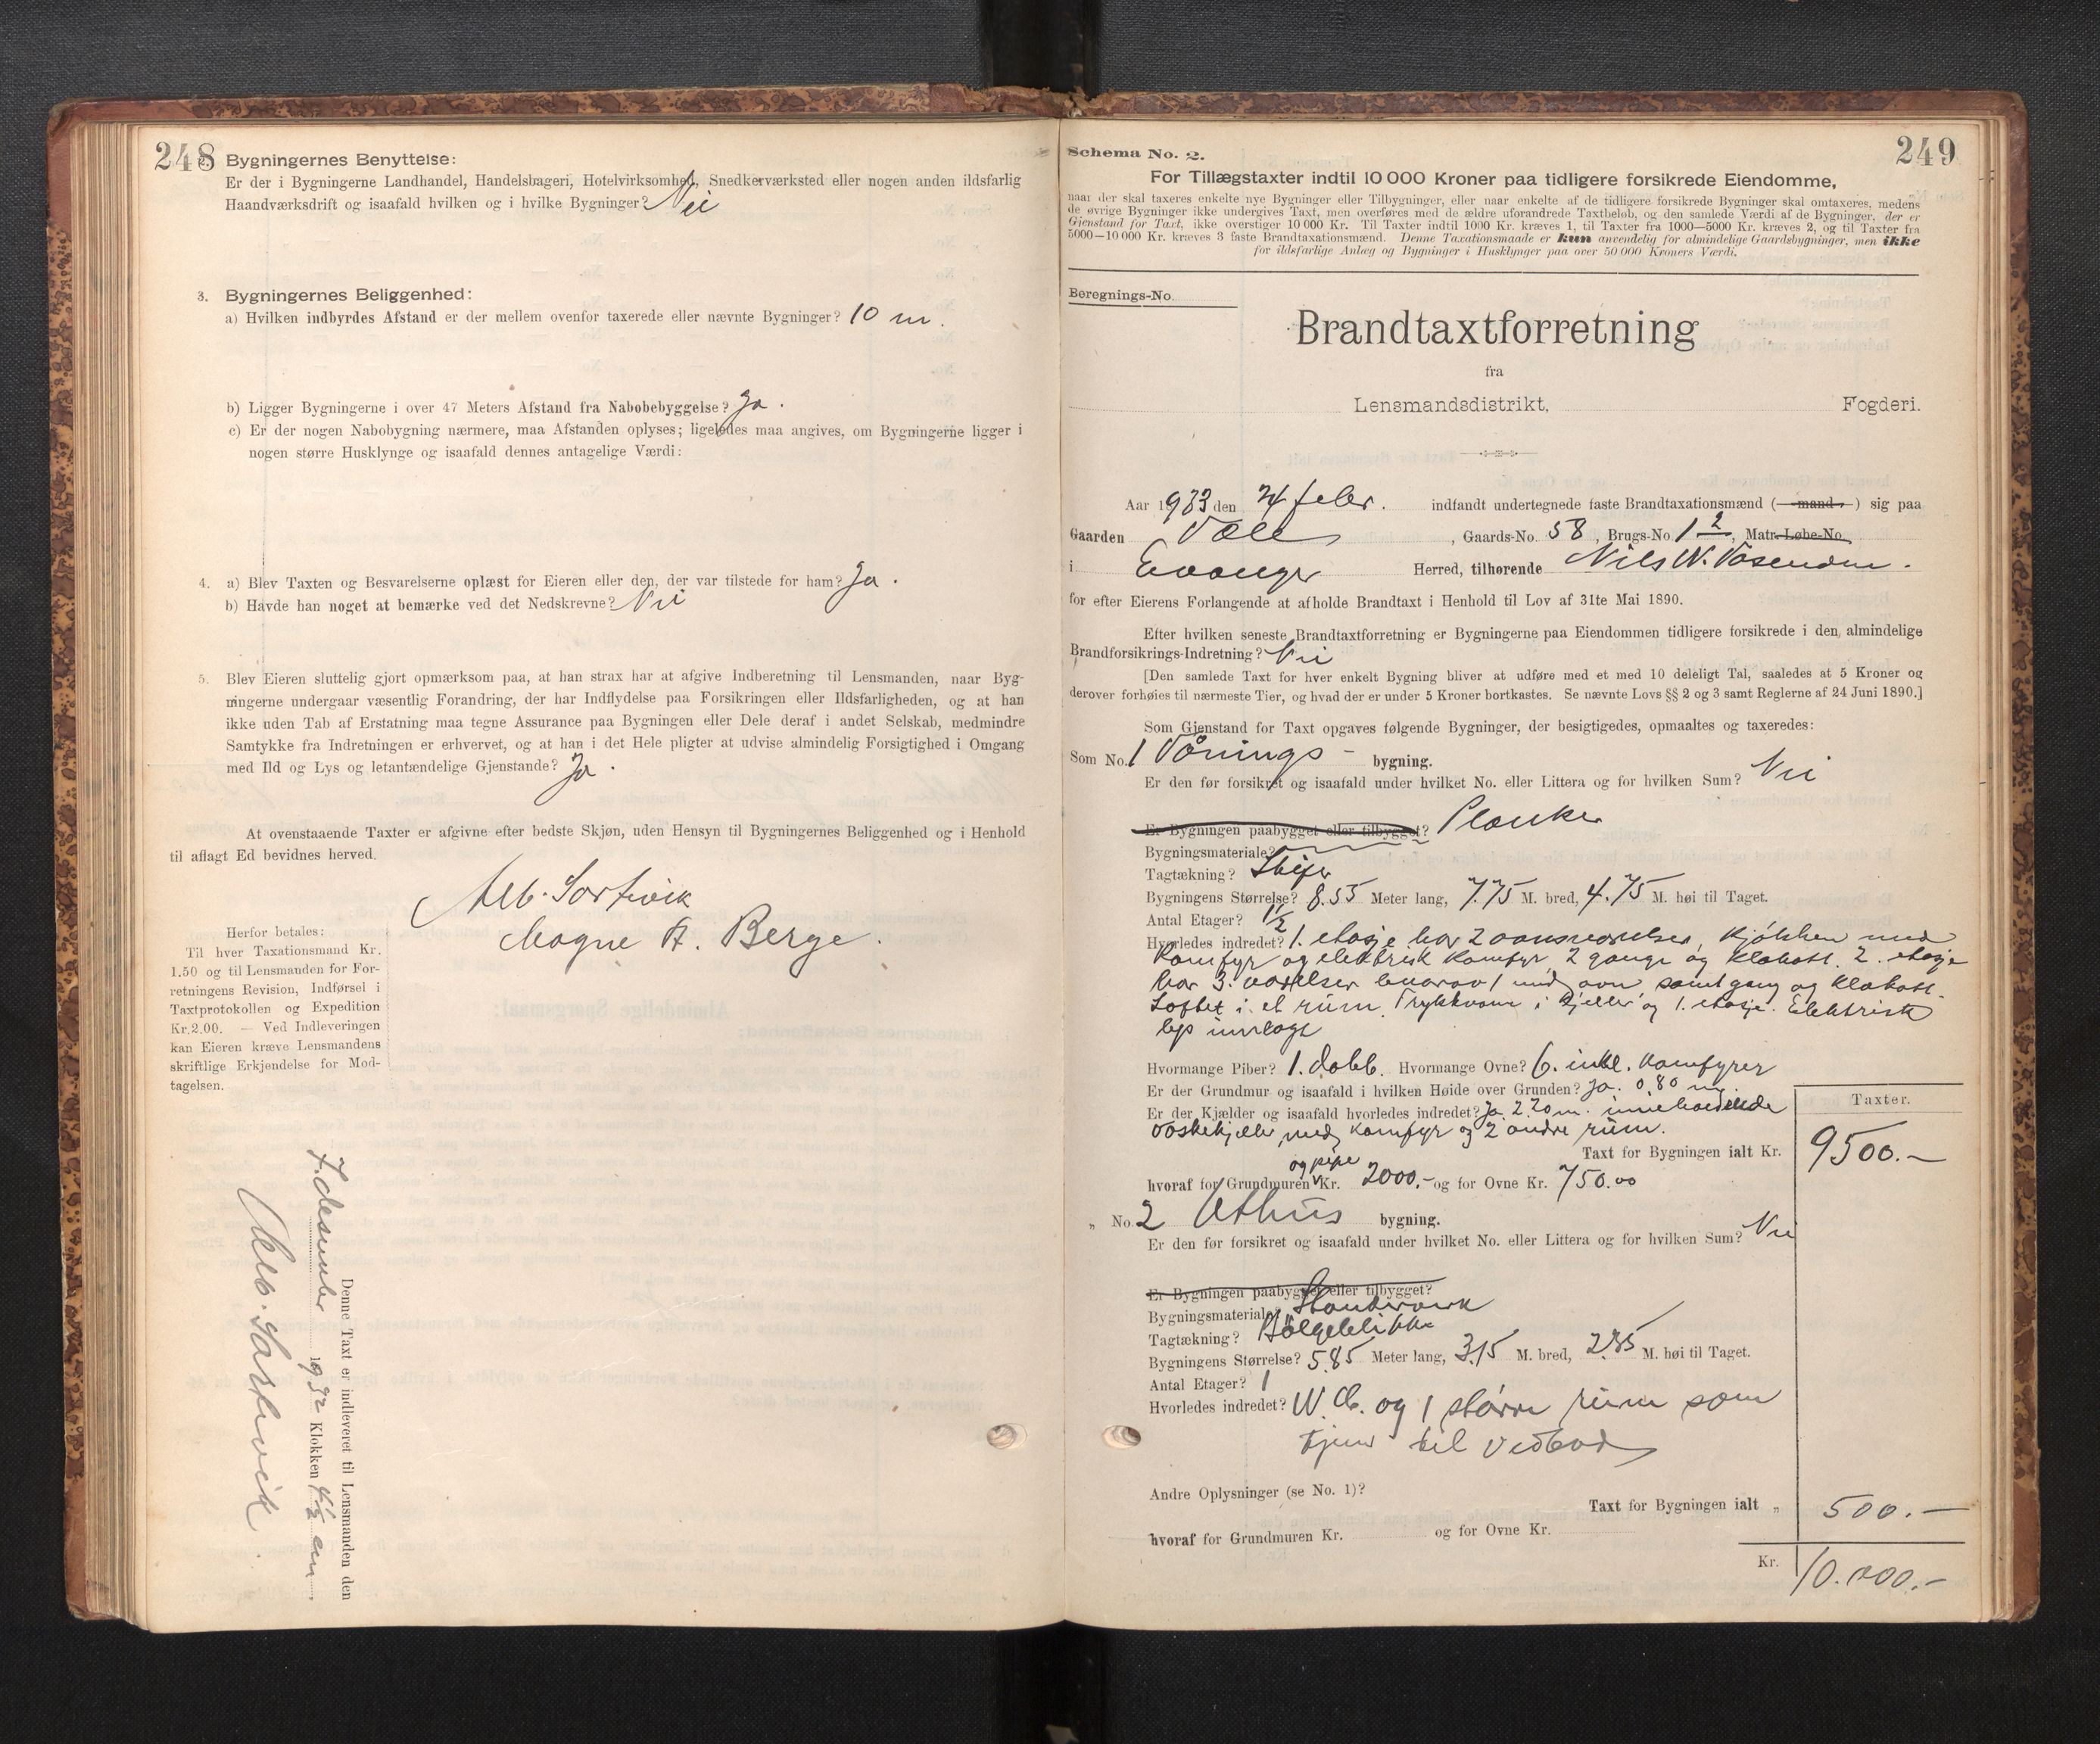 248
2. Bygningernes Benyttelse:
Er der i Bygningerne Landhandel, Handelsbageri, Hotelvirksomhed, Snedkerværksted eller nogen anden ildsfarlig
Haandværksdrift og isaafald hvilken og i hvilke Bygninger? Nei
3. Bygningernes Beliggenhed:
a) Hvilken indbyrdes Afstand er der mellem ovenfor taxerede eller nævnte Bygninger? 10 m.
b) Ligger Bygningerne i over 47 Meters Afstand fra Nabobebyggelse? Ja.
c) Er der nogen Nabobygning nærmere, maa Afstanden oplyses; ligeledes maa angives, om Bygningerne ligger i
nogen større Husklynge og isaafald dennes antagelige Værdi:
4. a) Blev Taxten og Besvarelserne oplæst for Eieren eller den, der var tilstede for ham? Ja.
b) Havde han noget at bemærke ved det Nedskrevne? Nei
5. Blev Eieren sluttelig gjort opmærksom paa, at han strax har at afgive Indberetning til Lensmanden, naar Byg-
ningerne undergaar væsentlig Forandring, der har Indflydelse paa Forsikringen eller Ildsfarligheden, og at han
ikke uden Tab af Erstatning maa tegne Assurance paa Bygningen eller Dele deraf i andet Selskab, medmindre
Samtykke fra Indretningen er erhvervet, og at han i det Hele pligter at udvise almindelig Forsigtighed i Omgang
med Ild og Lys og letantændelige Gjenstande? Ja.
At ovenstaaende Taxter er afgivne efter bedste Skjøn, uden Hensyn til Bygningernes Beliggenhed og i Henhold
til aflagt Ed bevidnes herved.
Alb. Sortvik
Magne A. Berge.
Herfor betales:
Til hver Taxationsmand Kr.
1.50 og til Lensmanden for For-
retningens Revision, Indførsel i
Taxtprotokollen og Expedition
Kr. 2.00. — Ved Indleveringen
kan Eieren kræve Lensmandens
skriftlige Erkjendelse for Mod-
tagelsen.
Denne Taxt er indleveret til Lensmanden den
7. desember 1932 Klokken 4½ em
Alb. Sortvik
249
Schema No. 2.
For Tillægstaxter indtil 10 000 Kroner paa tidligere forsikrede Eiendomme,
naar der skal taxeres enkelte nye Bygninger eller Tilbygninger, eller naar enkelte af de tidligere forsikrede Bygninger skal omtaxeres, medens
de øvrige Bygninger ikke undergives Taxt, men overføres med de ældre uforandrede Taxtbeløb, og den samlede Værdi af de Bygninger, der er
Gjenstand for Taxt, ikke overstiger 10 000 Kr. Til Taxter indtil 1000 Kr. kræves 1, til Taxter fra 1000—5000 Kr. kræves 2, og til Taxter fra
5000—10 000 Kr. kræves 3 faste Brandtaxationsmænd. Denne Taxationsmaade er kun anvendelig for almindelige Gaardsbygninger, men ikke
for ildsfarlige Anlæg og Bygninger i Husklynger paa over 50 000 Kroners Værdi.
Beregnings-No.
Brandtaxtforretning
fra
Lensmandsdistrikt, Fogderi.
Aar 1933 den 24 febr. indfandt undertegnede faste Brandtaxationsmænd (mand) sig paa
Gaarden , Gaards-No. 58, Brugs-No. 1 2, Matr. Løbe-No.
i Evanger Herred, tilhørende Nils N. Væsendvn.
for efter Eierens Forlangende at afholde Brandtaxt i Henhold til Lov af 31te Mai 1890.
Efter hvilken seneste Brandtaxtforretning er Bygningerne paa Eiendommen tidligere forsikrede i den almindelige
Brandforsikrings-Indretning? Nei
[Den samlede Taxt for hver enkelt Bygning bliver at udføre med et med 10 deleligt Tal, saaledes at 5 Kroner og
derover forhøies til nærmeste Tier, og hvad der er under 5 Kroner bortkastes. Se nævnte Lovs §§ 2 og 3 samt Reglerne af 24 Juni 1890.]
Som Gjenstand for Taxt opgaves følgende Bygninger, der besigtigedes, opmaaltes og taxeredes:
Som No. 1 Vånings- bygning.
Er den før forsikret og isaafald under hvilket No. eller Littera og for hvilken Sum? Nei
Er Bygningen paabygget eller tilbygget? Planker
Bygningsmateriale?
Tagtækning? Skifer
Bygningens Størrelse? 8.55 Meter lang, 7.75 M. bred, 4.75 M. høi til Taget.
Antal Etager? 1½
Hvorledes indredet? 1. etasje har 2 værelser, kjøkken med
komfyr og elektrisk komfyr, 2 gange og klosett. 2. etasje
har 3 værelser hvorav 1 med ovn samt gang og klosett.
Loftet i et rum. Trykkvann i kjeller og 1. etasje. Elektrisk
lys innlagt
Hvormange Piber? 1. dobb. Hvormange Ovne? 6. inkl. komfyrer
Er der Grundmur og isaafald i hvilken Høide over Grunden? Ja. 0.80 m.
Er der Kjælder og isaafald hvorledes indredet? Ja 2.20 m. inneholdende
vaskekjeller med komfyr og 2 andre rum.
Taxter.
Taxt for Bygningen ialt Kr. 9500.-
og pipe
hvoraf for Grundmuren Kr. 2000.- og for Ovne Kr. 750.00
„ No. 2 Uthus bygning.
Er den før forsikret og isaafald under hvilket No. eller Littera og for hvilken Sum? Nei
Er Bygningen paabygget eller tilbygget?
Bygningsmateriale? Standverk
Tagtækning? Bølgeblikk
Bygningens Størrelse? 5.85 Meter lang, 3.15 M. bred, 2.85 M. høi til Taget.
Antal Etager? 1
Hvorledes indredet? W.C. og 1 større rum som
tjener til vedbod
Andre Oplysninger (se No. 1)?
Taxt for Bygningen ialt „ 500.-
hvoraf for Grundmuren Kr. og for Ovne Kr.
Kr. 10.000.-